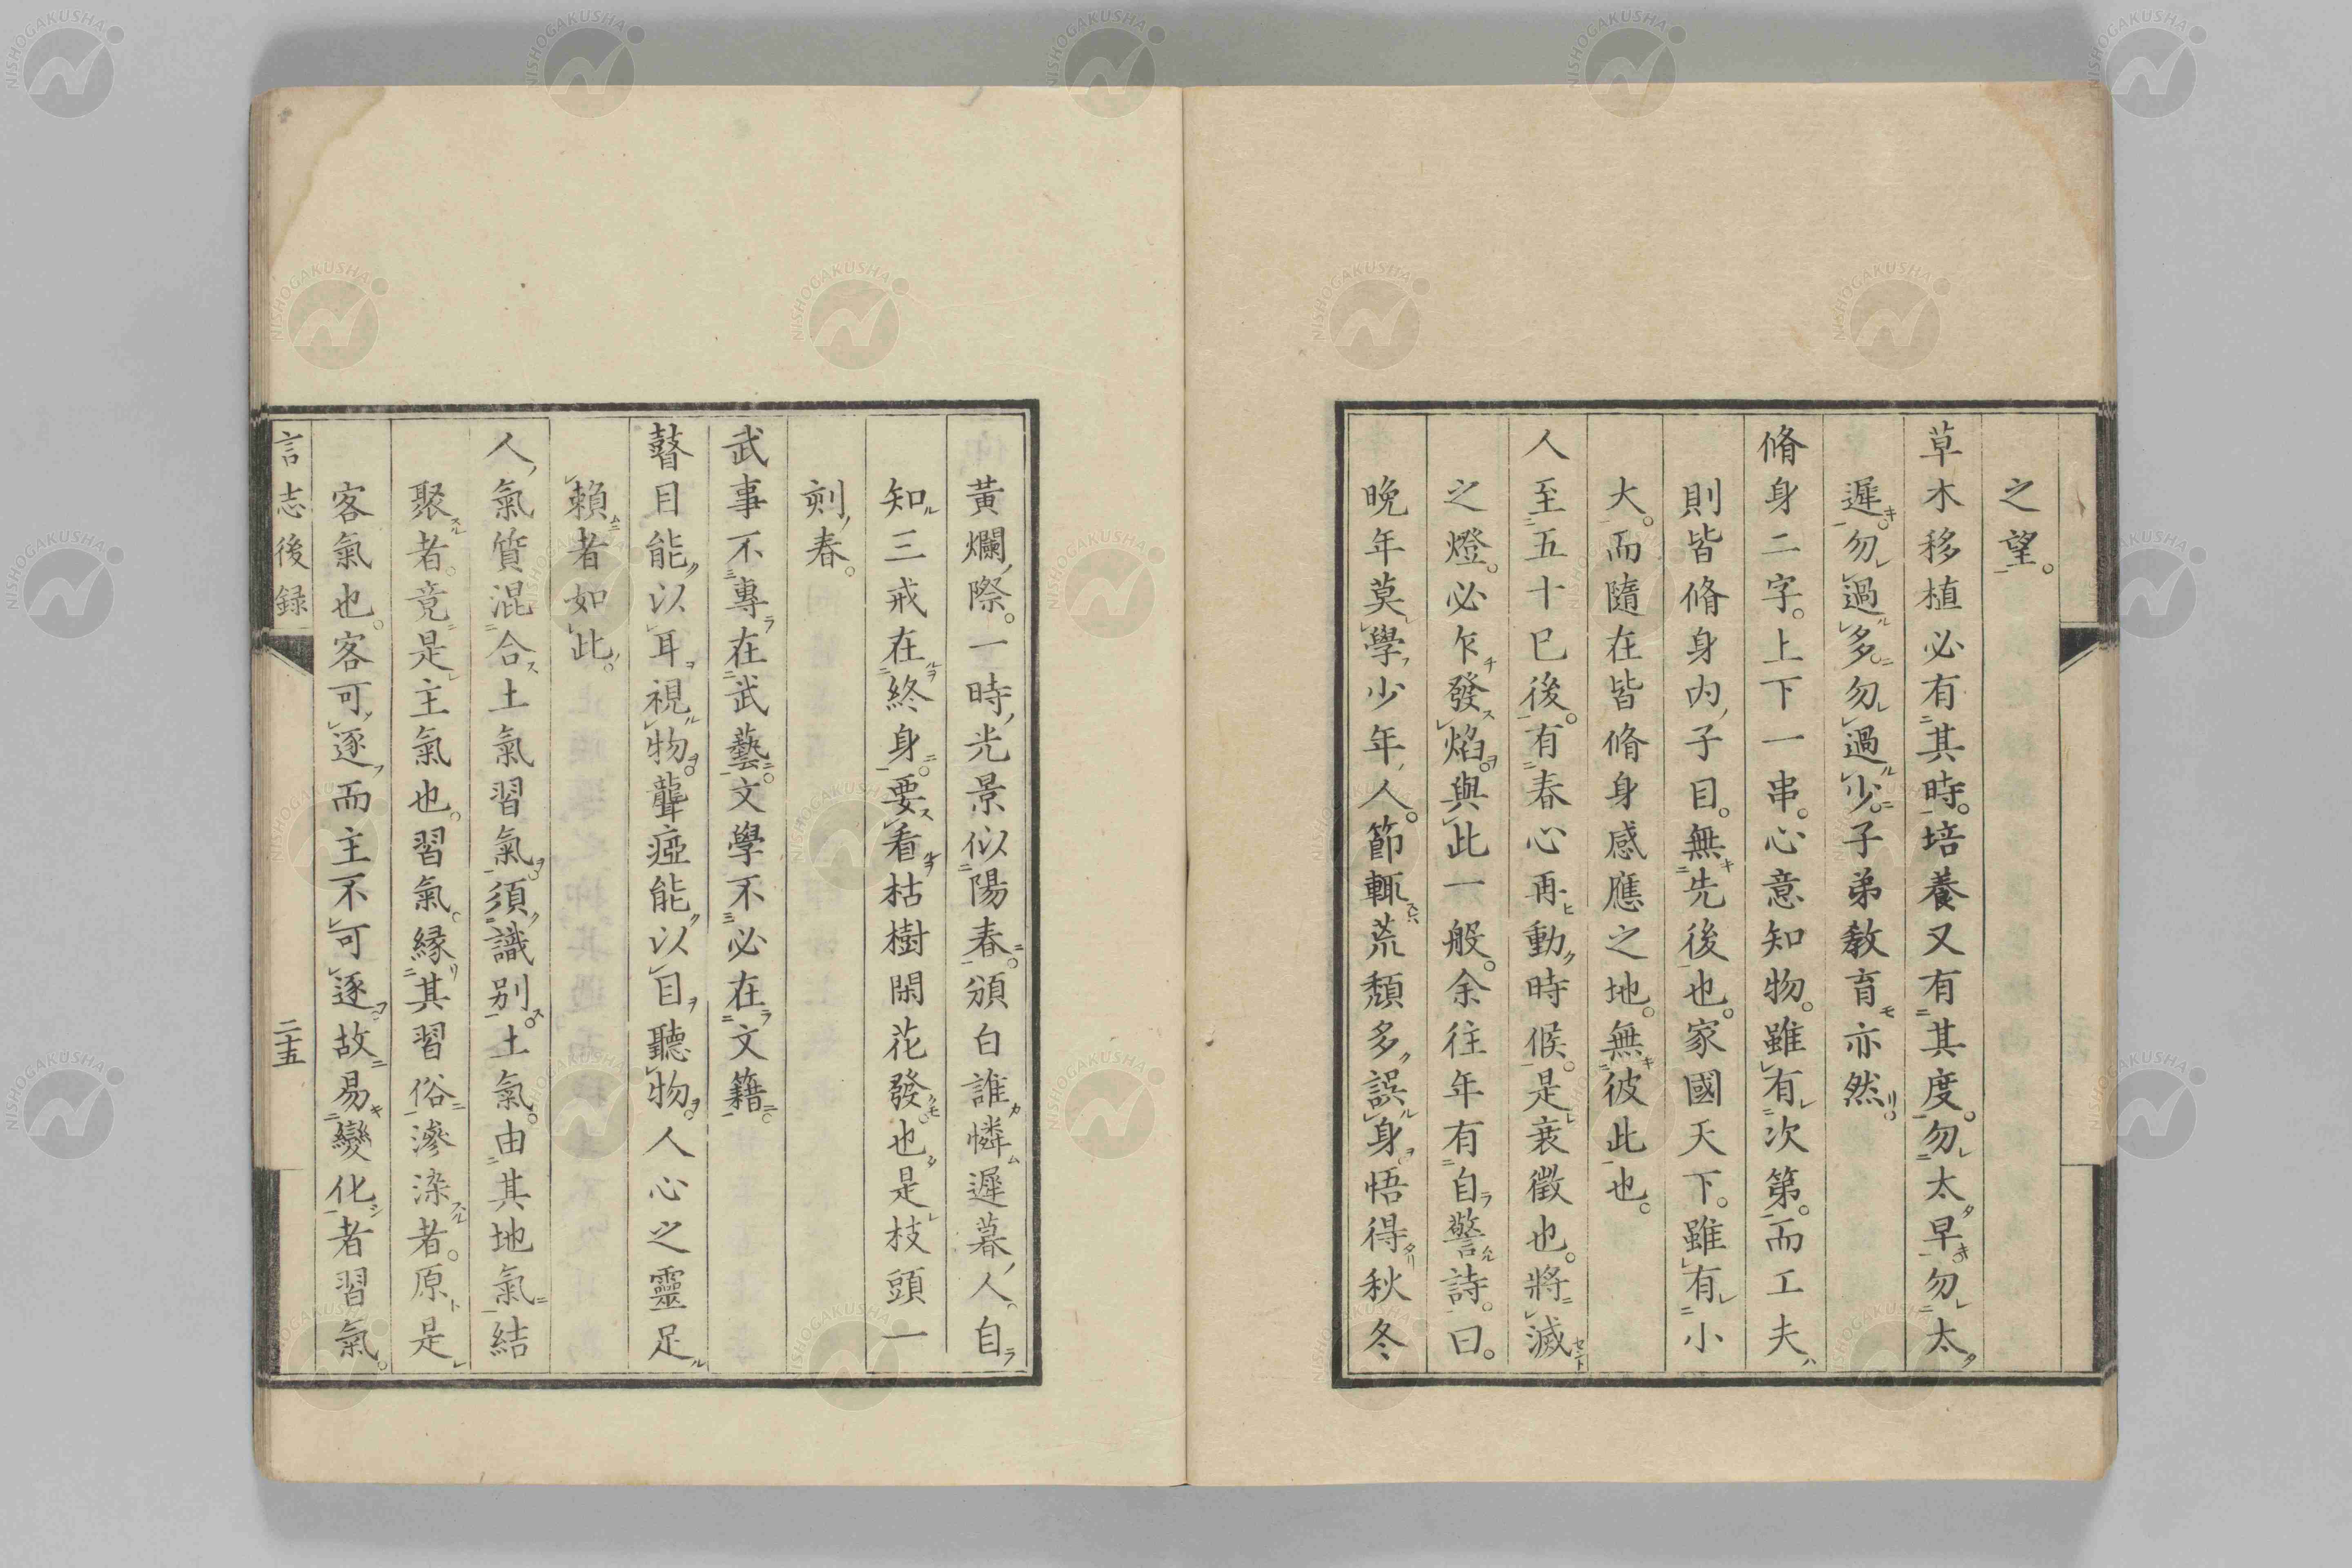 之望。
草木移植必有其時。培養又有其度。勿太早。勿太
遲。勿過多。勿過少。子弟敎育亦然。
脩身二字。上下一串。心意知物。雖有次第。而工夫
則皆脩身內子目。無先後也。家國天下。雖有小
大。而隨在皆脩身感應之地。無彼此也。
人至五十已後。有春心再動時候。是衰徵也。將滅
之燈。必乍發焰。與此一般。余往年有自警詩。曰。
晚年莫學少年人。節輒荒頽多誤身。悟得秋冬
黃爛際。一時光景似陽春。頒白誰憐遲暮人。自
知三戒在終身。要看枯樹閑花發。也是枝頭一
刻春。
武事不專在武藝。文學不必在文籍。
瞽目能以耳視物。聾瘂能以目聽物。人心之靈足
賴者如此。
人氣質混合土氣習氣。須識別。土氣。由其地氣結
聚者。竟是主氣也。習氣。縁其習俗滲染者。原是
客氣也。客可逐。而主不可逐。故易變化者習氣。
言志後録
二十五
NISHOGAKUSHA